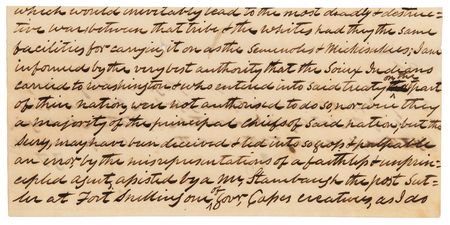 which would inevitably lead to the most deadly & destruc=
tive war, between that tribe & the whites, had they the same
facilities for carrying it on as the Seminoles & Mickisukees; I am
informed by the very best authority that the Sioux Indians
carried to Washington & who entered into said treaty on the part
of their nation, were not authorised to do so, nor were they
a majority of the principal chiefs of said nation, but the
Secry, may have been deceived & led into so gross & palpable
an error by the misrepresentations of a faithless & unprin=
cepled agent, assisted by a Mr, Stambaugh the post Sut=
ler at Fort Snelling one of Govr, Capes creatures, as I do